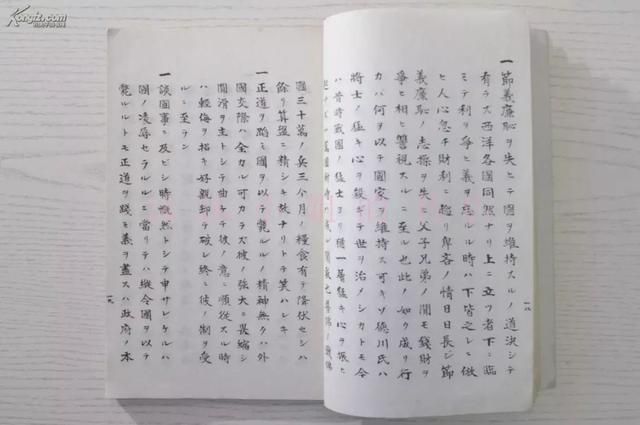 Kongfz.com
一節義廉恥ヲ失ヒテ國ヲ維持スルノ道決シテ
有ラス西洋各國同然ナリ上ニ立ツ者下ニ臨
ミテ利ヲ爭ヒ義ヲ忘ルヽ時ハ下皆之レニ倣
ヒ人心忽チ財利ニ趨リ卑吝ノ情日日長シ節
義廉恥ノ志操ヲ失ヒ父子兄弟ノ間モ錢財ヲ
爭ヒ相ヒ讐視スルニ至ル也此ノ如ク成リ行
カバ何ヲ以テ國家ヲ維持ス可キソ德川氏ハ
將士ノ猛キ心ヲ殺ギテ世ヲ治メシカトモ今
ハ昔時戰國ノ猛士ヨリ猶一層猛キ心ヲ振ヒ
一八
國三十萬ノ兵三个月ノ糧食有テ降伏セシハ
餘リ算盤ニ精シキ故ナリトテ笑ハレキ
一正道ヲ踏ミ國ヲ以テ斃ルルノ精神無クハ外
國交際ハ全カル可カラズ彼ノ強大ニ畏縮シ
圓滑ヲ主トシテ曲ケテ彼ノ意ニ順從スル時
ハ輕侮ヲ招キ好親却テ破レ終ニ彼ノ制ヲ受
ルニ至テン
一談國事ニ及ビシ時慨然トシテ申サレケルハ
國ノ凌辱セラルルニ當リテハ縱令國ヲ以テ
斃ルルトモ正道ヲ踐ミ義ヲ盡スハ政府ノ本
一九